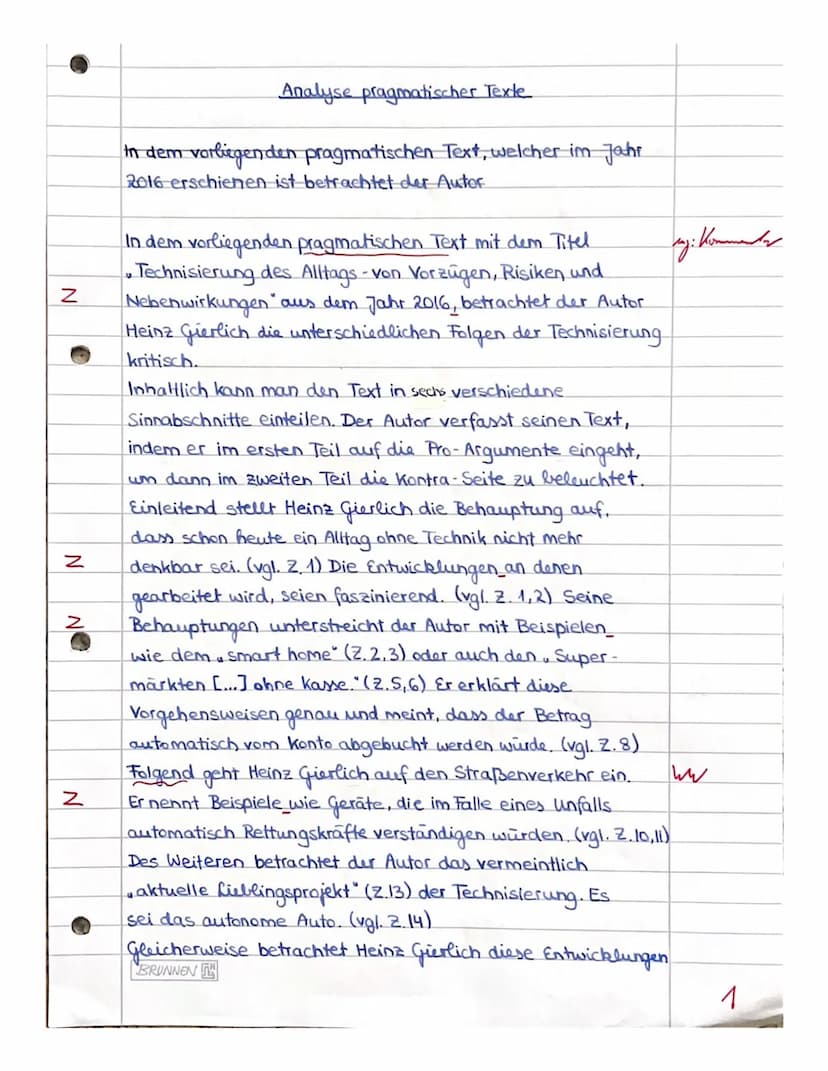 Analyse pragmatischer Texte
In dem vorliegenden pragmatischen Text, welcher im Jahr
2016 erschienen ist betrachtet der Autor
In dem vorliegenden pragmatischen Text mit dem Titel
„Technisierung des Alltags - von Vorzügen, Risiken und
Z Nebenwirkungen“ aus dem Jahr 2016, betrachtet der Autor
Heinz Gierlich die unterschiedlichen Folgen der Technisierung
kritisch.
Inhaltlich kann man den Text in sechs verschiedene
Sinnabschnitte einteilen. Der Autor verfasst seinen Text,
indem er im ersten Teil auf die Pro-Argumente eingeht,
um dann im zweiten Teil die Kontra-Seite zu beleuchtet.
Einleitend stellt Heinz Gierlich die Behauptung auf,
dass schon heute ein Alltag ohne Technik nicht mehr
Z denkbar sei. (vgl. Z. 1) Die Entwicklungen an denen
gearbeitet wird, seien faszinierend. (vgl. Z. 1,2) Seine
Z Behauptungen unterstreicht der Autor mit Beispielen
wie dem „smart home“ (Z.2,3) oder auch den „Super-
märkten [...] ohne Kasse.“ (Z.5,6) Er erklärt diese
Vorgehensweisen genau und meint, dass der Betrag
automatisch vom Konto abgebucht werden würde. (vgl. Z. 8)
Folgend geht Heinz Gierlich auf den Straßenverkehr ein. WW
Z Er nennt Beispiele wie Geräte, die im Falle eines Unfalls
automatisch Rettungskräfte verständigen würden. (vgl. Z.10,11)
Des Weiteren betrachtet der Autor das vermeintlich
„aktuelle Lieblingsprojekt“ (Z.13) der Technisierung. Es
sei das autonome Auto. (vgl. Z.14)
Gleicherweise betrachtet Heinz Gierlich diese Entwicklungen
BRUNNEN
1